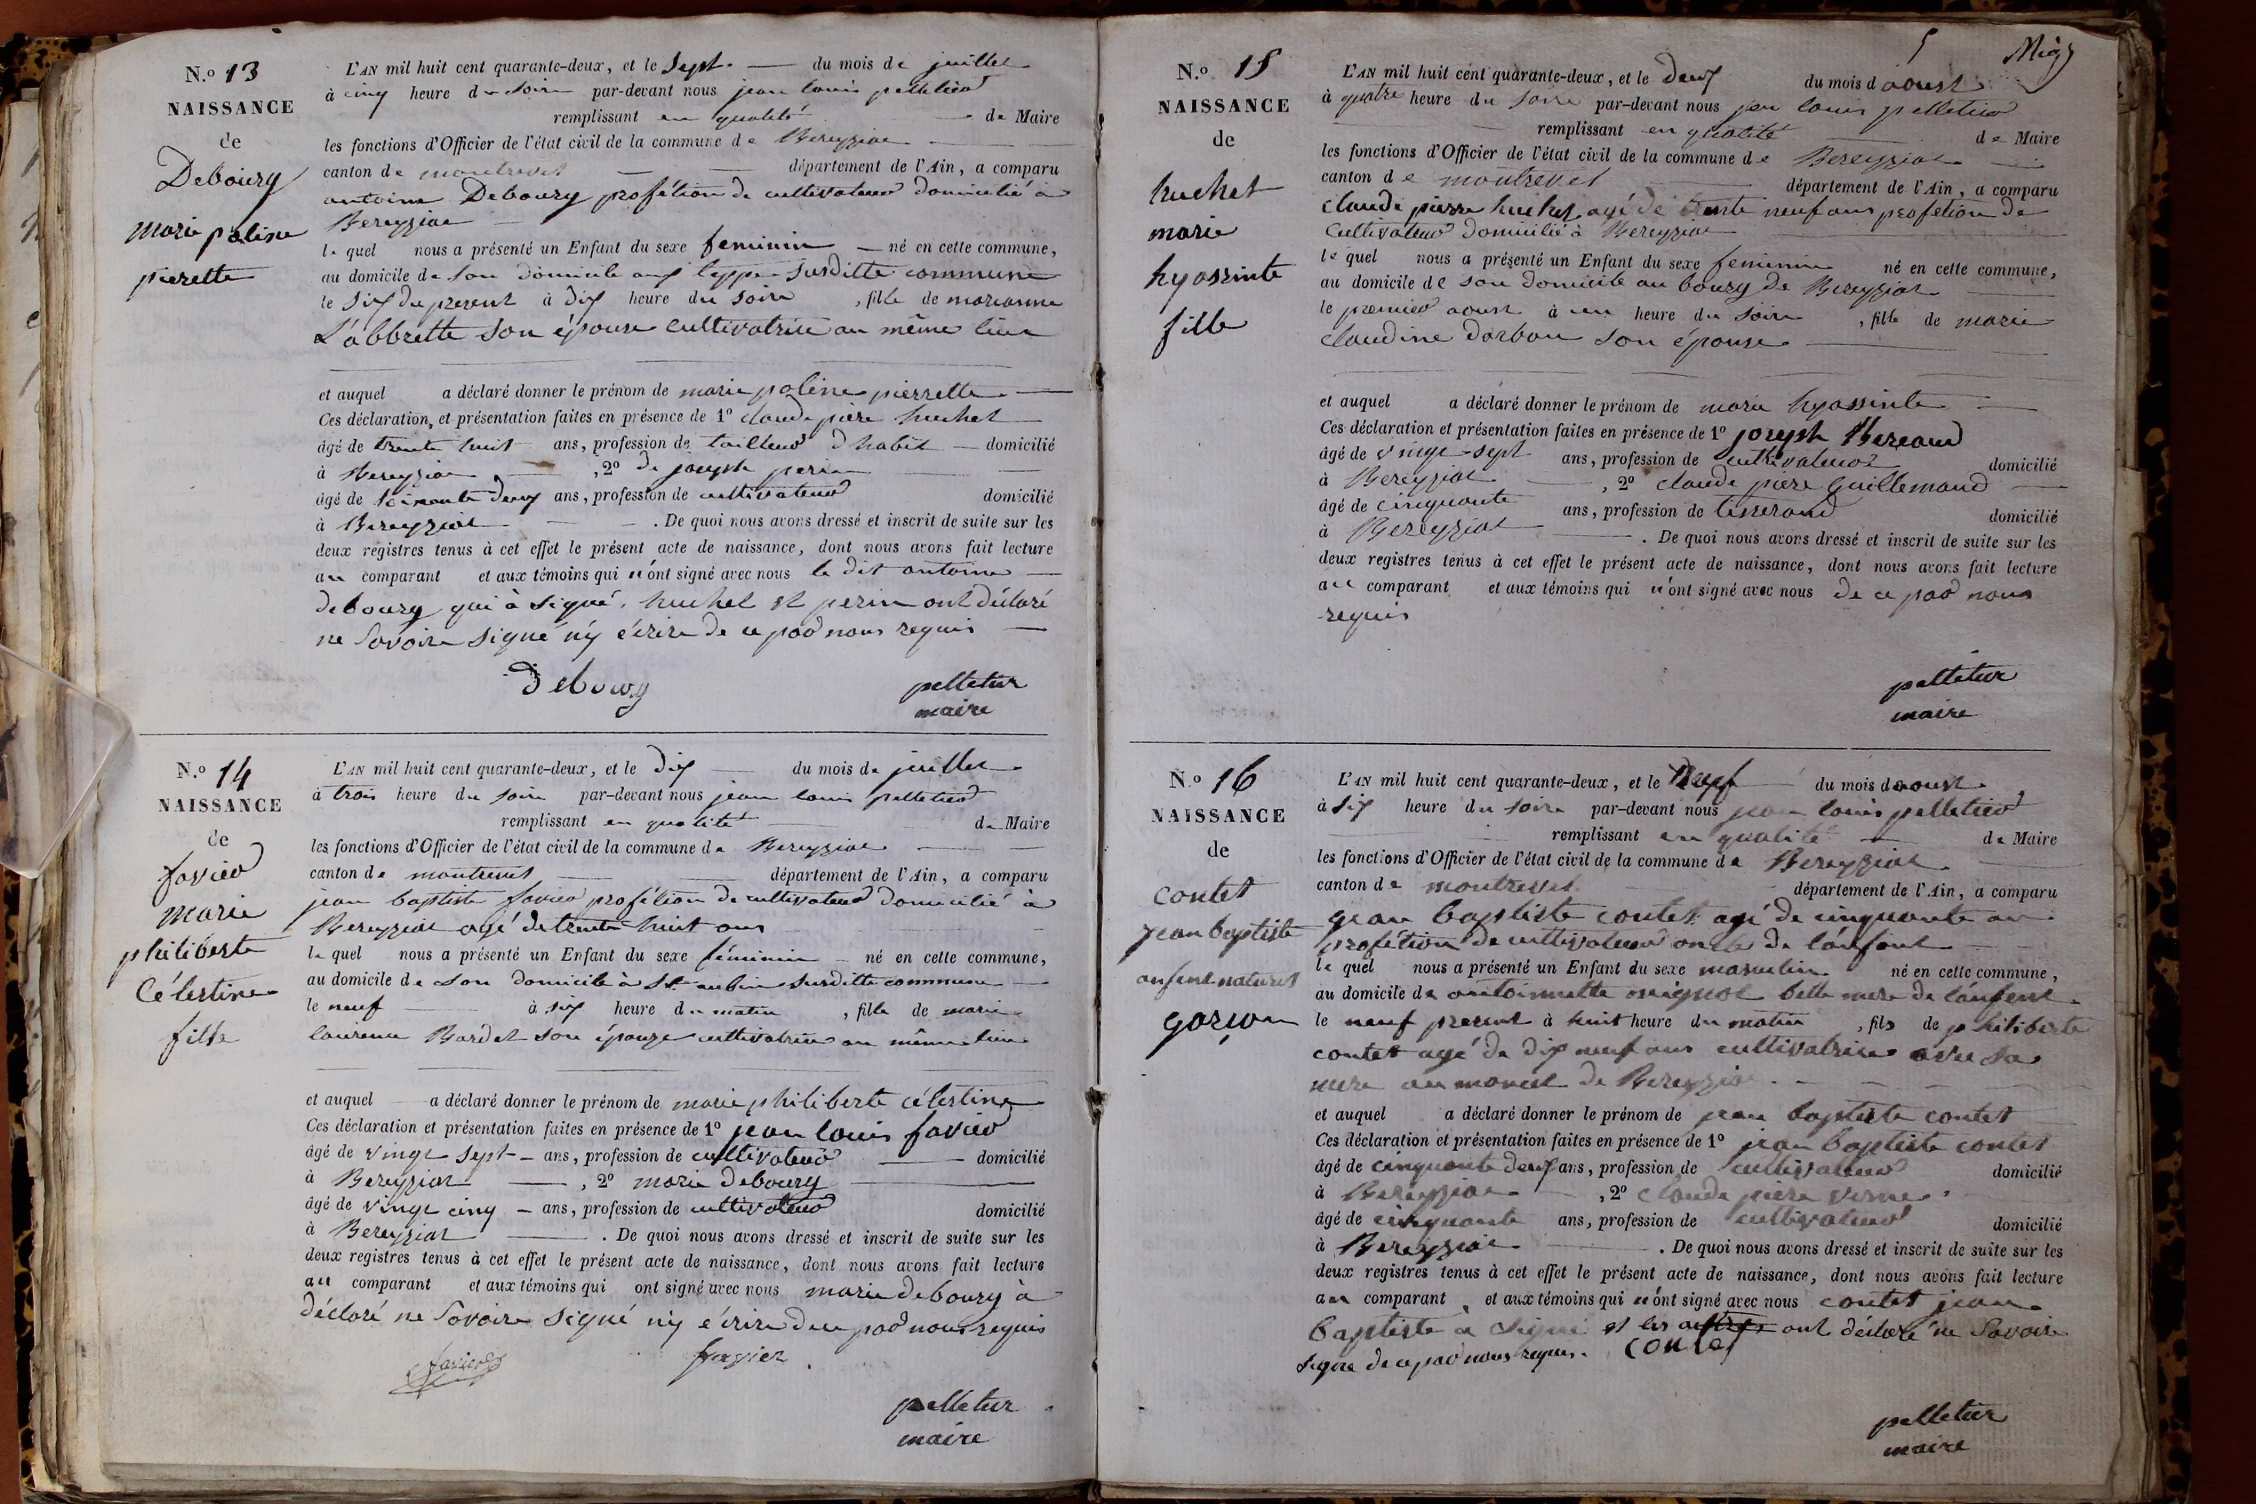 N.º 13
NAISSANCE
de
Debourg
marie poline
pierette
L'AN mil huit cent quarante-deux, et le sept du mois de juillet
à cinq heure du soir par-devant nous jean louis pelletier
remplissant en qualité de Maire
les fonctions d'Officier de l'état civil de la commune de Bereyziat
canton de montrevel département de l'Ain, a comparu
antoine Debourg profétion de cultivateur domicilié à
Bereyziat
le quel nous a présenté un Enfant du sexe feminin né en cette commune,
au domicile de son domicile susditte commune
le six du present à dix heure du soir, fille de marianne
L'abbrette son épouse cultivatrice au même lieu
et auquel a déclaré donner le prénom de marie poline pierrette
Ces déclaration et présentation faites en présence de 1º claude pière huchet
âgé de trente huit ans, profession de tailleur d'habit domicilié
à Bereyziat, 2º de joseph perin
âgé de soixante deux ans, profession de cultivateur domicilié
à Bereyziat. De quoi nous avons dressé et inscrit de suite sur les
deux registres tenus à cet effet le présent acte de naissance, dont nous avons fait lecture
au comparant et aux témoins qui n'ont signé avec nous le dit antoine
debourg qui à signé. huchet et perin ont déclaré
ne savoir signé n'y écrire de ce par nous requis
Debourg
pelletier
maire
N.º 14
NAISSANCE
de
favier
marie
philiberte
Célestine
fille
L'AN mil huit cent quarante-deux, et le dix du mois de juillet
à trois heure du soir par-devant nous jean louis pelletier
remplissant en qualité de Maire
les fonctions d'Officier de l'état civil de la commune de Bereyziat
canton de montrevel département de l'Ain, a comparu
jean baptiste favier profétion de cultivateur domicilié à
Bereyziat agé de trente huit ans
le quel nous a présenté un Enfant du sexe féminin né en cette commune,
au domicile de son domicile à St aubin susditte commune
le neuf à six heure du matin, fille de marie
laurence Bardet son épouze cultivatrice au même lieu
et auquel a déclaré donner le prénom de marie philiberte célestine
Ces déclaration et présentation faites en présence de 1º jean louis favier
âgé de vingt sept ans, profession de cultivateur domicilié
à Bereyziat, 2º marie debourg
âgé de vingt cinq ans, profession de cultivateur domicilié
à Bereyziat. De quoi nous avons dressé et inscrit de suite sur les
deux registres tenus à cet effet le présent acte de naissance, dont nous avons fait lecture
au comparant et aux témoins qui ont signé avec nous marie debourg à
déclaré ne savoir signé n'y écrire de ce par nous requis
favier favier
pelletier
maire
5
N.º 15
NAISSANCE
de
huchet
marie
hyassinte
fille
L'AN mil huit cent quarante-deux, et le deux du mois d'aoust
à quatre heure du soir par-devant nous jean louis pelletier
remplissant en qualité de Maire
les fonctions d'Officier de l'état civil de la commune de Bereyziat
canton de montrevel département de l'Ain, a comparu
claude pierre huchet agé de trente neuf ans profetion de
cultivateur domicilié à Bereyziat
le quel nous a présenté un Enfant du sexe feminin né en cette commune,
au domicile de son domicile au bourg de Bereyziat
le premier aoust à un heure du soir, fille de marie
claudine darbon son épouse
et auquel a déclaré donner le prénom de marie hyassinte
Ces déclaration et présentation faites en présence de 1º joseph Bereaud
âgé de vingt-sept ans, profession de cultivateur domicilié
à Bereyziat, 2º claude pière Guillemaud
âgé de cinquante ans, profession de tisserand domicilié
à Bereyziat. De quoi nous avons dressé et inscrit de suite sur les
deux registres tenus à cet effet le présent acte de naissance, dont nous avons fait lecture
au comparant et aux témoins qui n'ont signé avec nous de ce par nous
requis
pelletier
maire
N.º 16
NAISSANCE
de
contet
jean baptiste
anfent naturel
garçon
L'AN mil huit cent quarante-deux, et le Neuf du mois d'aoust
à six heure du soir par-devant nous jean louis pelletier
remplissant en qualité de Maire
les fonctions d'Officier de l'état civil de la commune de Bereyziat
canton de montrevel département de l'Ain, a comparu
jean baptiste contet agé de cinquante an
profétion de cultivateur oncle de l'anfant
le quel nous a présenté un Enfant du sexe masculin né en cette commune,
au domicile de antoinette mignot belle mere de l'anfent
le neuf present à huit heure du matin, fils de philiberte
contet agé de dix neuf ans cultivatrice avec sa
mere au de Bereyziat
et auquel a déclaré donner le prénom de jean baptiste contet
Ces déclaration et présentation faites en présence de 1º jean baptiste contet
âgé de cinquante deux ans, profession de cultivateur domicilié
à Bereyziat, 2º claude pière verne
âgé de cinquante ans, profession de cultivateur domicilié
à Bereyziat. De quoi nous avons dressé et inscrit de suite sur les
deux registres tenus à cet effet le présent acte de naissance, dont nous avons fait lecture
au comparant et aux témoins qui n'ont signé avec nous contet jean
baptiste a signé et les autres ont déclaré ne savoir
signé de ce par nous requis. contet
pelletier
maire